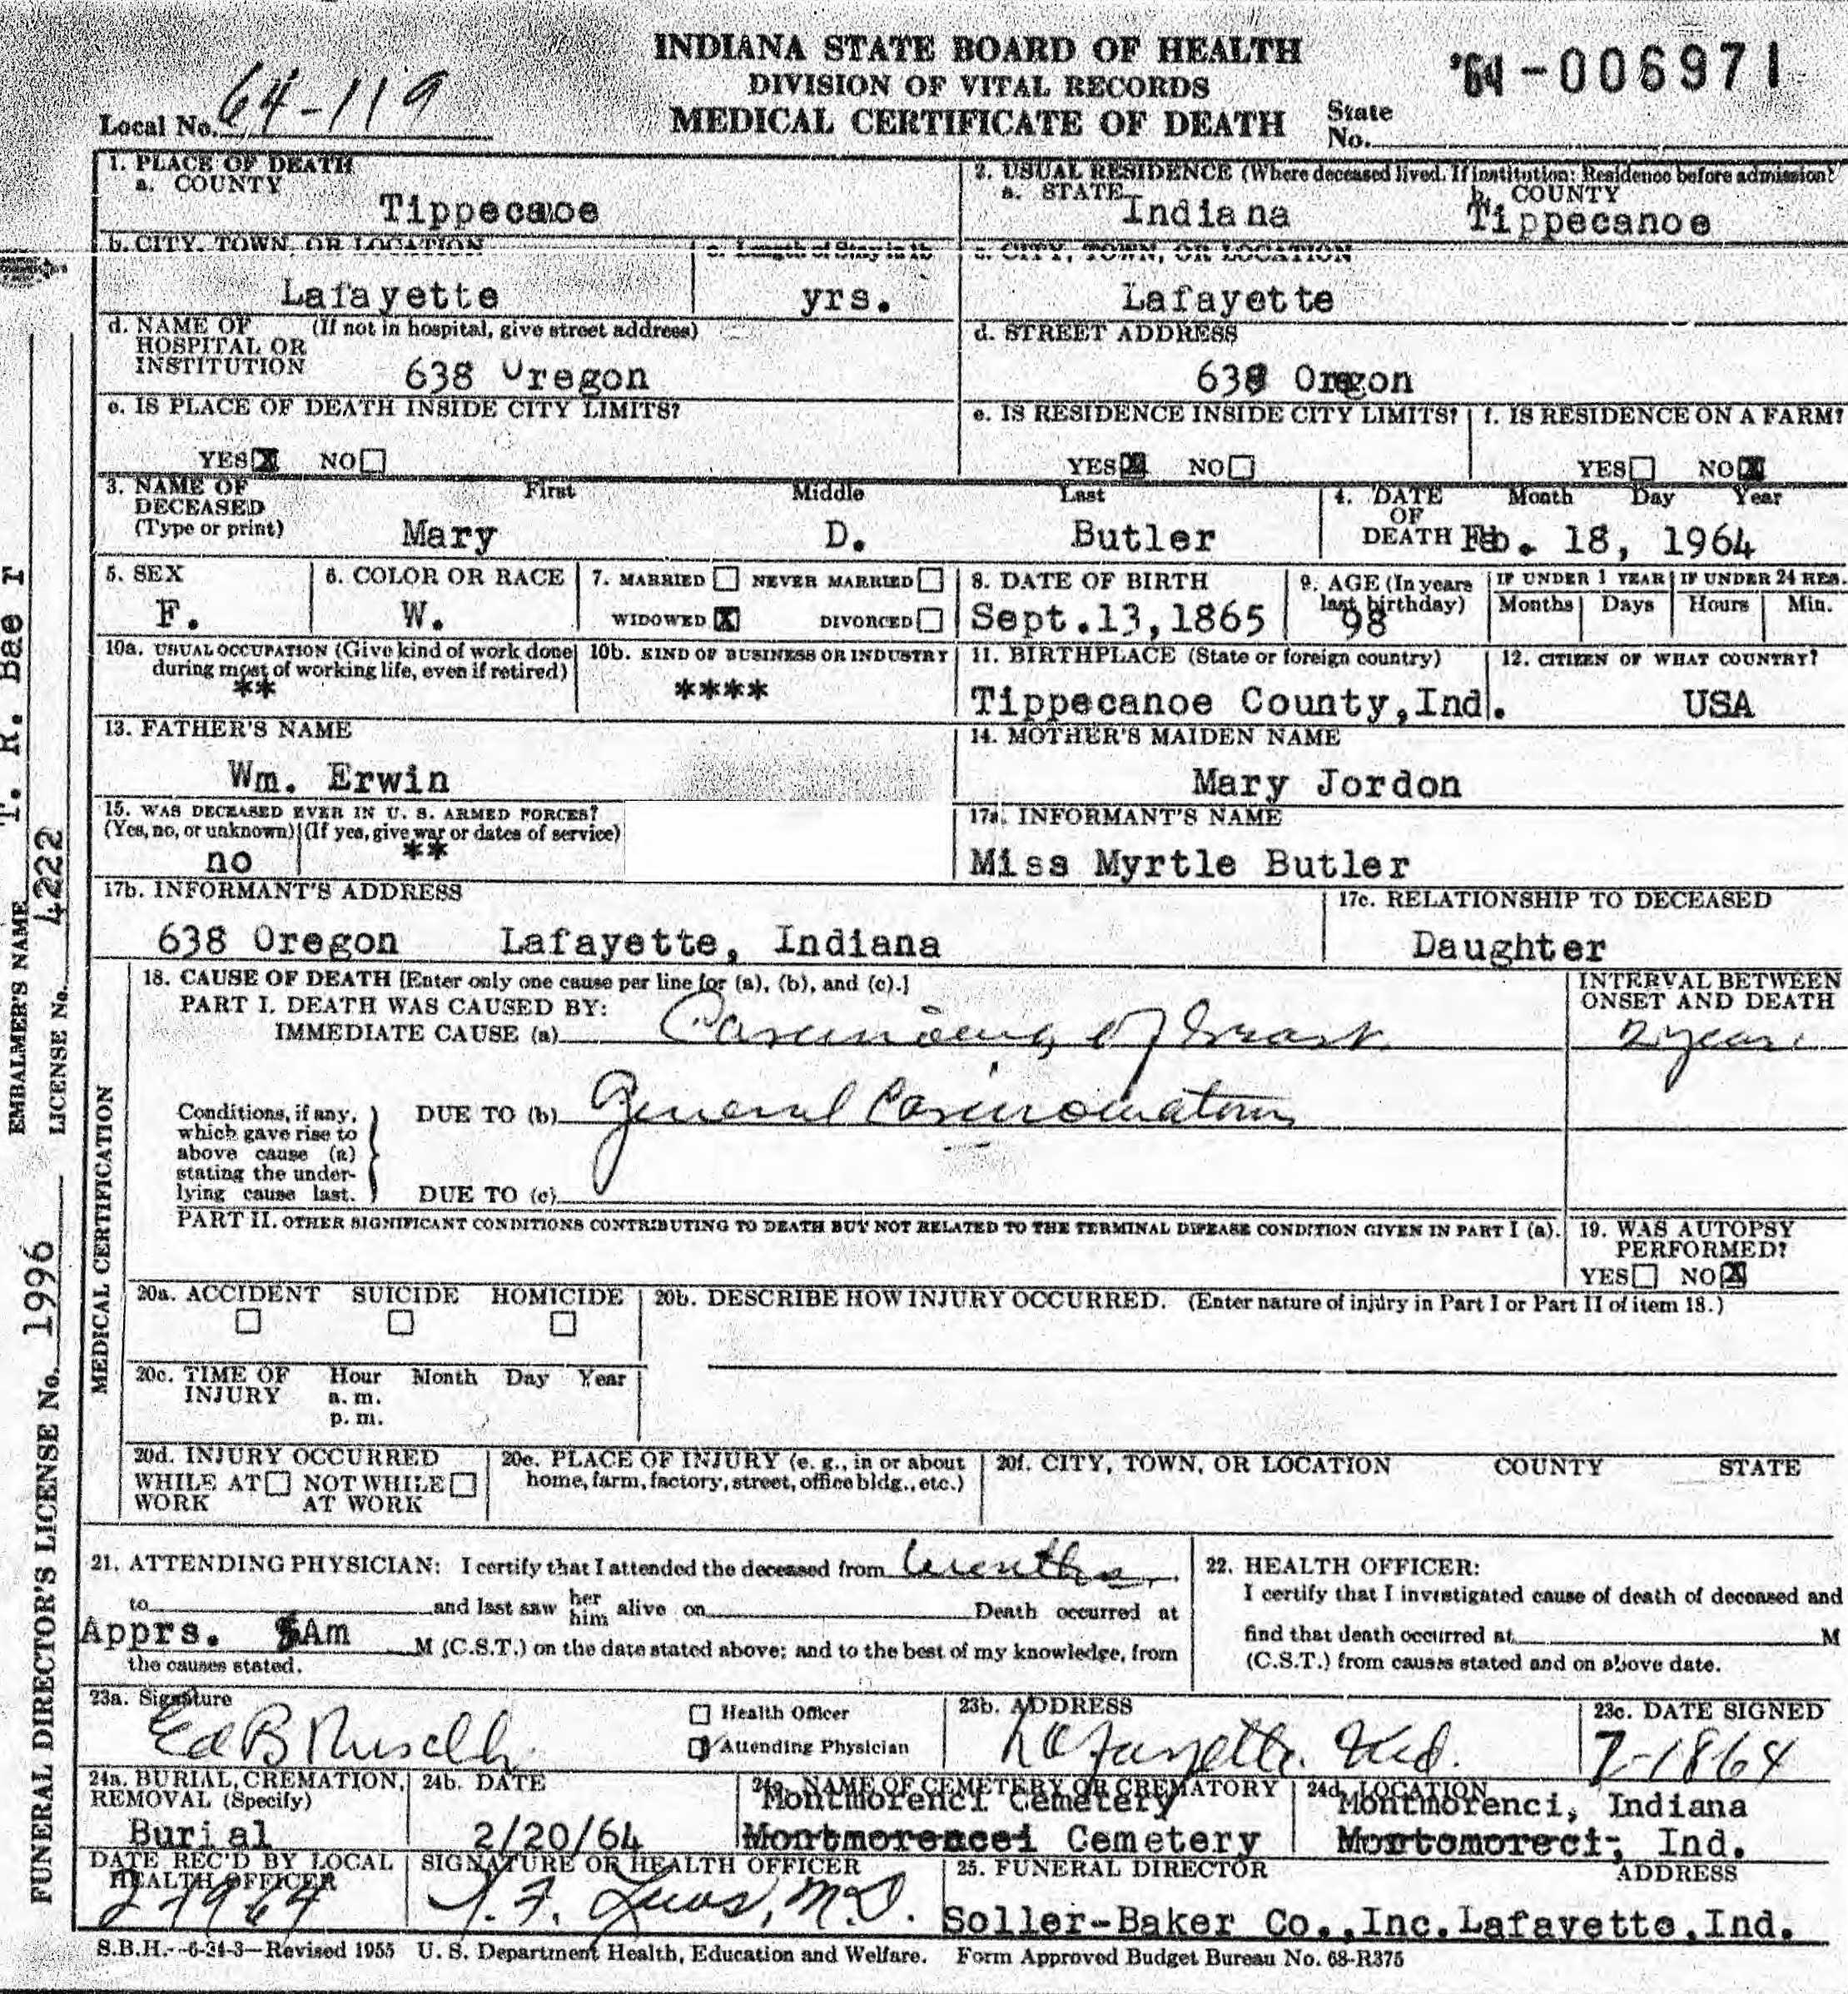 INDIANA STATE BOARD OF HEALTH
DIVISION OF VITAL RECORDS
MEDICAL CERTIFICATE OF DEATH
'64-006971
Local No. 64-119
State No.
1. PLACE OF DEATH
a. COUNTY
Tippecanoe
2. USUAL RESIDENCE (Where deceased lived. If institution: Residence before admission)
a. STATE Indiana
b. COUNTY Tippecanoe
b. CITY, TOWN, OR LOCATION
Lafayette
c. Length of Stay in 1b
yrs.
c. CITY, TOWN, OR LOCATION
Lafayette
d. NAME OF HOSPITAL OR INSTITUTION (If not in hospital, give street address)
638 Oregon
d. STREET ADDRESS
638 Oregon
e. IS PLACE OF DEATH INSIDE CITY LIMITS?
YES X NO
e. IS RESIDENCE INSIDE CITY LIMITS?
YES X NO
f. IS RESIDENCE ON A FARM?
YES NO X
3. NAME OF DECEASED (Type or print)
First Middle Last
Mary D. Butler
4. DATE OF DEATH Month Day Year
Feb. 18, 1964
5. SEX
F.
6. COLOR OR RACE
W.
7. MARRIED NEVER MARRIED
WIDOWED X DIVORCED
8. DATE OF BIRTH
Sept.13,1865
9. AGE (In years last birthday)
98
IF UNDER 1 YEAR
Months Days
IF UNDER 24 HRS.
Hours Min.
10a. USUAL OCCUPATION (Give kind of work done during most of working life, even if retired)
**
10b. KIND OF BUSINESS OR INDUSTRY
****
11. BIRTHPLACE (State or foreign country)
Tippecanoe County,Ind.
12. CITIZEN OF WHAT COUNTRY?
USA
13. FATHER'S NAME
Wm. Erwin
14. MOTHER'S MAIDEN NAME
Mary Jordon
15. WAS DECEASED EVER IN U. S. ARMED FORCES?
(Yes, no, or unknown) (If yes, give war or dates of service)
no **
17a. INFORMANT'S NAME
Miss Myrtle Butler
17b. INFORMANT'S ADDRESS
638 Oregon Lafayette, Indiana
17c. RELATIONSHIP TO DECEASED
Daughter
18. CAUSE OF DEATH [Enter only one cause per line for (a), (b), and (c).]
PART I. DEATH WAS CAUSED BY:
IMMEDIATE CAUSE (a) Carcinoma of breast
INTERVAL BETWEEN ONSET AND DEATH
2 years
Conditions, if any, which gave rise to above cause (a) stating the underlying cause last.
DUE TO (b) General Carcinomatous
DUE TO (c)
PART II. OTHER SIGNIFICANT CONDITIONS CONTRIBUTING TO DEATH BUT NOT RELATED TO THE TERMINAL DISEASE CONDITION GIVEN IN PART I (a).
19. WAS AUTOPSY PERFORMED?
YES NO X
20a. ACCIDENT SUICIDE HOMICIDE
20b. DESCRIBE HOW INJURY OCCURRED. (Enter nature of injury in Part I or Part II of item 18.)
20c. TIME OF INJURY Hour Month Day Year
a. m.
p. m.
20d. INJURY OCCURRED
WHILE AT WORK NOT WHILE AT WORK
20e. PLACE OF INJURY (e. g., in or about home, farm, factory, street, office bldg., etc.)
20f. CITY, TOWN, OR LOCATION COUNTY STATE
21. ATTENDING PHYSICIAN: I certify that I attended the deceased from months
to and last saw her him alive on Death occurred at
Apprs. 5Am M (C.S.T.) on the date stated above; and to the best of my knowledge, from
the causes stated.
22. HEALTH OFFICER:
I certify that I investigated cause of death of deceased and
find that death occurred at M
(C.S.T.) from causes stated and on above date.
23a. Signature
Ed B Ruschli
Health Officer
Attending Physician
23b. ADDRESS
LaFayette Ind.
23c. DATE SIGNED
2-1864
24a. BURIAL, CREMATION, REMOVAL (Specify)
Burial
24b. DATE
2/20/64
24c. NAME OF CEMETERY OR CREMATORY
Montmorenci Cemetery
Montmorencei Cemetery
24d. LOCATION
Montmorenci, Indiana
Montomoreci, Ind.
DATE REC'D BY LOCAL HEALTH OFFICER
2 1964
SIGNATURE OF HEALTH OFFICER
M.D.
25. FUNERAL DIRECTOR ADDRESS
Soller-Baker Co.,Inc.Lafayette,Ind.
S.B.H.--6-24-3—Revised 1955 U. S. Department Health, Education and Welfare. Form Approved Budget Bureau No. 68-R375
MEDICAL CERTIFICATION
EMBALMER'S NAME T. R. Bae r
LICENSE No. 4222
FUNERAL DIRECTOR'S LICENSE No. 1996